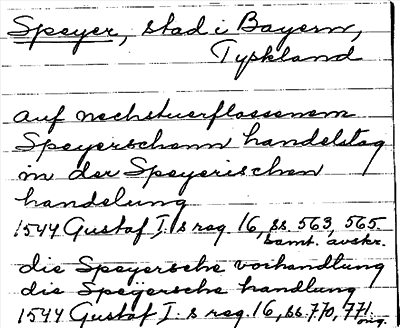 Speyer, stad i Bayern,
Tyskland
auf nechstuerflossenem
Speyerschenn handelstag
in der Speyerischen
handelung
1544 Gustaf I:s reg. 16, ss. 563, 565.
samt. avskr.
die Speyersche vorhandlung
die Speijersche handlung
1544 Gustaf I:s reg. 16, ss. 770, 771.
orig.